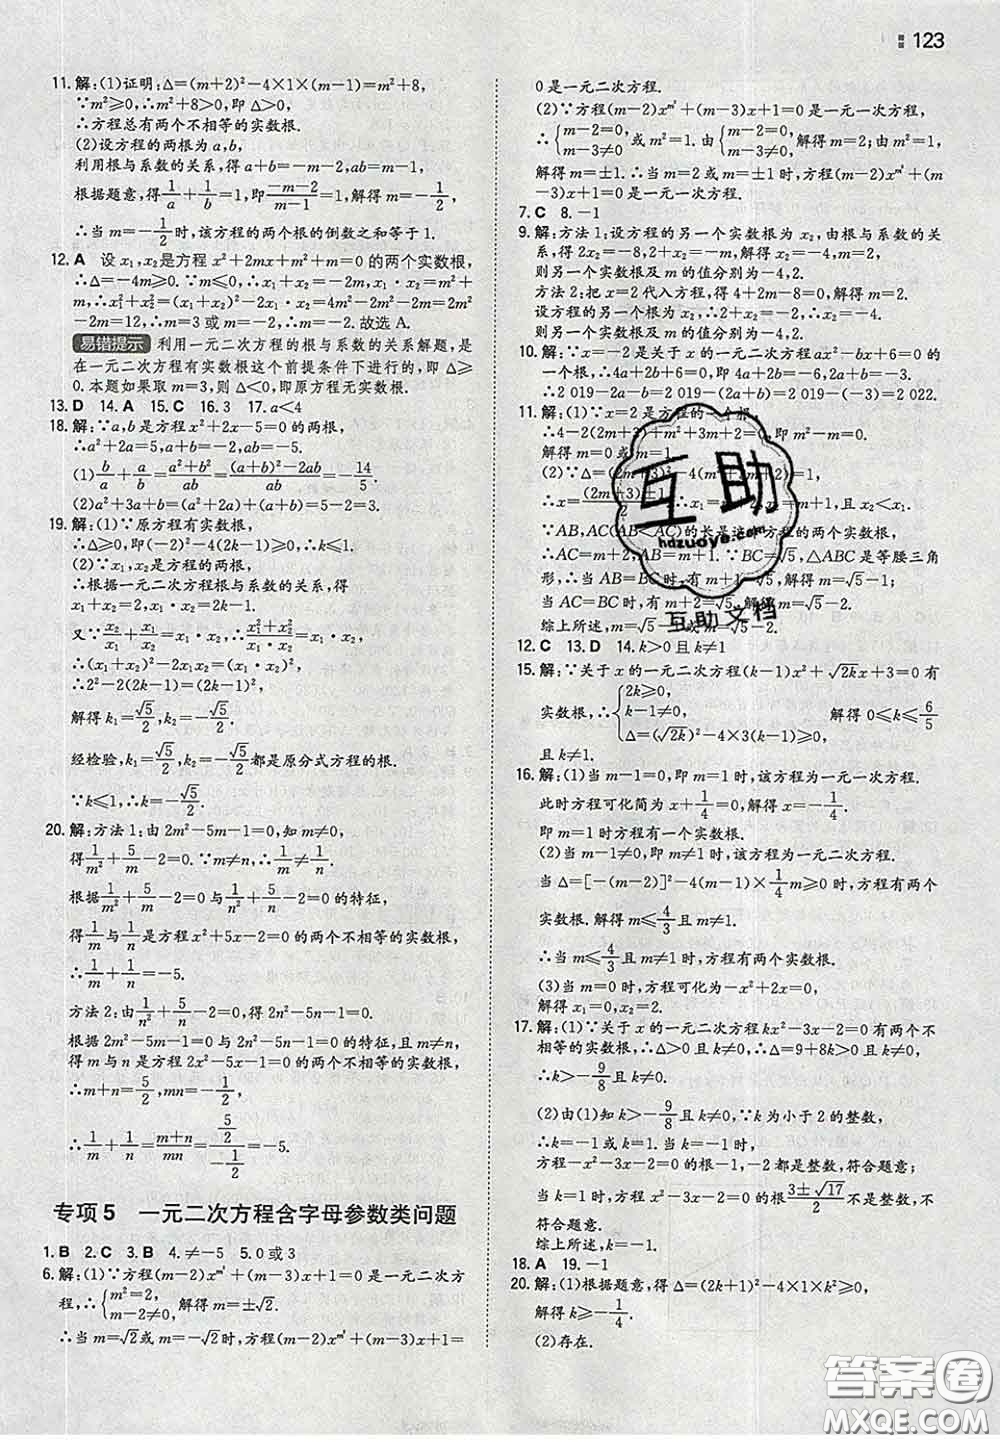 123
11. 解:(1)证明:Δ=(m+2)²-4×1×(m-1)=m²+8,
∵m²≥0,∴m²+8>0,即Δ>0,
∴方程总有两个不相等的实数根.
(2)设方程的两根为a,b,
利用根与系数的关系,得a+b=-m-2,ab=m-1,
根据题意,得1/a+1/b=1,即(-m-2)/(m-1)=1,解得m=-1/2,
∴当m=-1/2时,该方程的两个根的倒数之和等于1.
12. A 设x₁,x₂是方程x²+2mx+m²+m=0的两个实数根,
∴Δ=-4m≥0.∵m≤0,∴x₁+x₂=-2m,x₁·x₂=m²+m,
∴x₁²+x₂²=(x₁+x₂)²-2x₁·x₂=4m²-2m²-2m=2m²
-2m=12,∴m=3或m=-2.∴m=-2.故选A.
易错提示 利用一元二次方程的根与系数的关系解题,是
在一元二次方程有实数根这个前提条件下进行的,即Δ≥
0.本题如果取m=3,则Δ<0,即原方程无实数根.
13. D 14. A 15. C 16. 3 17. a<4
18. 解:∵a,b是方程x²+2x-5=0的两根,
∴a²+2a=5,a+b=-2,ab=-5.
(1)b/a+a/b=(a²+b²)/ab=((a+b)²-2ab)/ab=-14/5.
(2)a²+3a+b=(a²+2a)+(a+b)=5-2=3.
19. 解:(1)∵原方程有实数根,
∴Δ≥0,即(-2)²-4(2k-1)≥0,∴k≤1.
(2)∵x₁,x₂是方程的两根,
∴根据一元二次方程根与系数的关系,得
x₁+x₂=2,x₁·x₂=2k-1.
又∵x₂/x₁+x₁/x₂=x₁·x₂,∴(x₁²+x₂²)/(x₁·x₂)=x₁·x₂,
∴(x₁+x₂)²-2x₁x₂=(x₁·x₂)²,
∴2²-2(2k-1)=(2k-1)²,
解得k₁=√5/2,k₂=-√5/2.
经检验,k₁=√5/2,k₂=-√5/2都是原分式方程的根.
∵k≤1,∴k=-√5/2.
20. 解:方法1:由2m²-5m-1=0,知m≠0,
得1/m²+5/m-2=0.∵m≠n,∴1/m≠1/n,
根据1/m²+5/m-2=0与1/n²+5/n-2=0的特征,
得1/m与1/n是方程x²+5x-2=0的两个不相等的实数根,
∴1/m+1/n=-5.
方法2:由1/n²+5/n-2=0,得2n²-5n-1=0,
根据2m²-5m-1=0与2n²-5n-1=0的特征,且m≠n,
得m与n是方程2x²-5x-1=0的两个不相等的实数根,
∴m+n=5/2,mn=-1/2,
∴1/m+1/n=(m+n)/mn=(5/2)/(-1/2)=-5.
专项5 一元二次方程含字母参数类问题
1. B 2. C 3. B 4. ≠-5 5. 0或3
6. 解:(1)∵方程(m-2)x^{m²}+(m-3)x+1=0是一元二次方
程,∴{m²=2, m-2≠0, 解得m=±√2.
∴当m=√2或m=-√2时,方程(m-2)x^{m²}+(m-3)x+1=
0是一元二次方程.
(2)∵方程(m-2)x^{m²}+(m-3)x+1=0是一元一次方程,
∴{m-2=0, m-3≠0 或m²=0.由{m-2=0, m-3≠0, 解得m=2;由m²=1,
解得m=±1.∴当m=2或m=±1时,方程(m-2)x^{m²}+
(m-3)x+1=0是一元一次方程.
7. C 8. -1
9. 解:方法1:设方程的另一个实数根为x₂,由根与系数的关
系,得2x₂=-8,2+x₂=-m,解得x₂=-4,m=2,
则另一个实数根及m的值分别为-4,2.
方法2:把x=2代入方程,得4+2m-8=0,解得m=2.
设方程的另一个实数根为x₂,则2+x₂=-2,解得x₂=-4.
则另一个实数根及m的值分别为-4,2.
10. 解:∵x=-2是关于x的一元二次方程ax²-bx+6=0的
一个根,∴4a+2b+6=0,∴2a+b=-3.
∴2 019-2a-b=2 019-(2a+b)=2 019-(-3)=2 022.
11. 解:(1)∵x=2是方程的一个根,
∴4-2(2m+3)+m²+3m+2=0,即m²-m=0.
解得m=0或m=1.
(2)∵Δ=(2m+3)²-4(m²+3m+2)=1,
∴x=((2m+3)±1)/2,∴x₁=m+2,x₂=m+1,且x₂<x₁.
∵AB,AC(AB<AC)的长是这个方程的两个实数根,
∴AC=m+2,AB=m+1.∵BC=√5,△ABC是等腰三角
形,∴当AB=BC时,有m+1=√5,解得m=√5-1;
当AC=BC时,有m+2=√5,解得m=√5-2.
综上所述,m=√5-1或m=√5-2.
12. C 13. D 14. k>0且k≠1
15. 解:∵关于x的一元二次方程(k-1)x²+√(2k)x+3=0有
实数根,∴{2k≥0, k-1≠0, Δ=(√(2k))²-4×3(k-1)≥0, 解得0≤k≤6/5
且k≠1.
16. 解:(1)当m-1=0,即m=1时,该方程为一元一次方程.
此时方程可化简为x+1/4=0,解得x=-1/4.
即m=1时方程有一个实数根.
(2)当m-1≠0,即m≠1时,该方程为一元二次方程.
当Δ=[-(m-2)]²-4(m-1)×1/4 m≥0时,方程有两个
实数根.解得m≤4/3且m≠1.
∴当m≤4/3且m≠1时,方程有两个实数根.
(3)当m=0时,方程可化为-x²+2x=0,
解得x₁=0,x₂=2.
17. 解:(1)∵关于x的一元二次方程kx²-3x-2=0有两个不
相等的实数根,∴Δ>0且k≠0,∴Δ=9+8k>0且k≠0,
∴k>-9/8且k≠0.
(2)由(1)知k>-9/8且k≠0,∵k为小于2的整数,
∴k=-1或k=1.∵当k=-1时,
方程-x²-3x-2=0的根-1,-2都是整数,符合题意;
当k=1时,方程x²-3x-2=0的根(3±√17)/2不是整数,
不符合题意.
综上所述,k=-1.
18. A 19. -1
20. 解:(1)根据题意,得Δ=(2k+1)²-4×1×k²≥0,
解得k≥-1/4.
(2)存在.
互助
hdzuoye.com
互助文档
答案圈
MXQE.COM